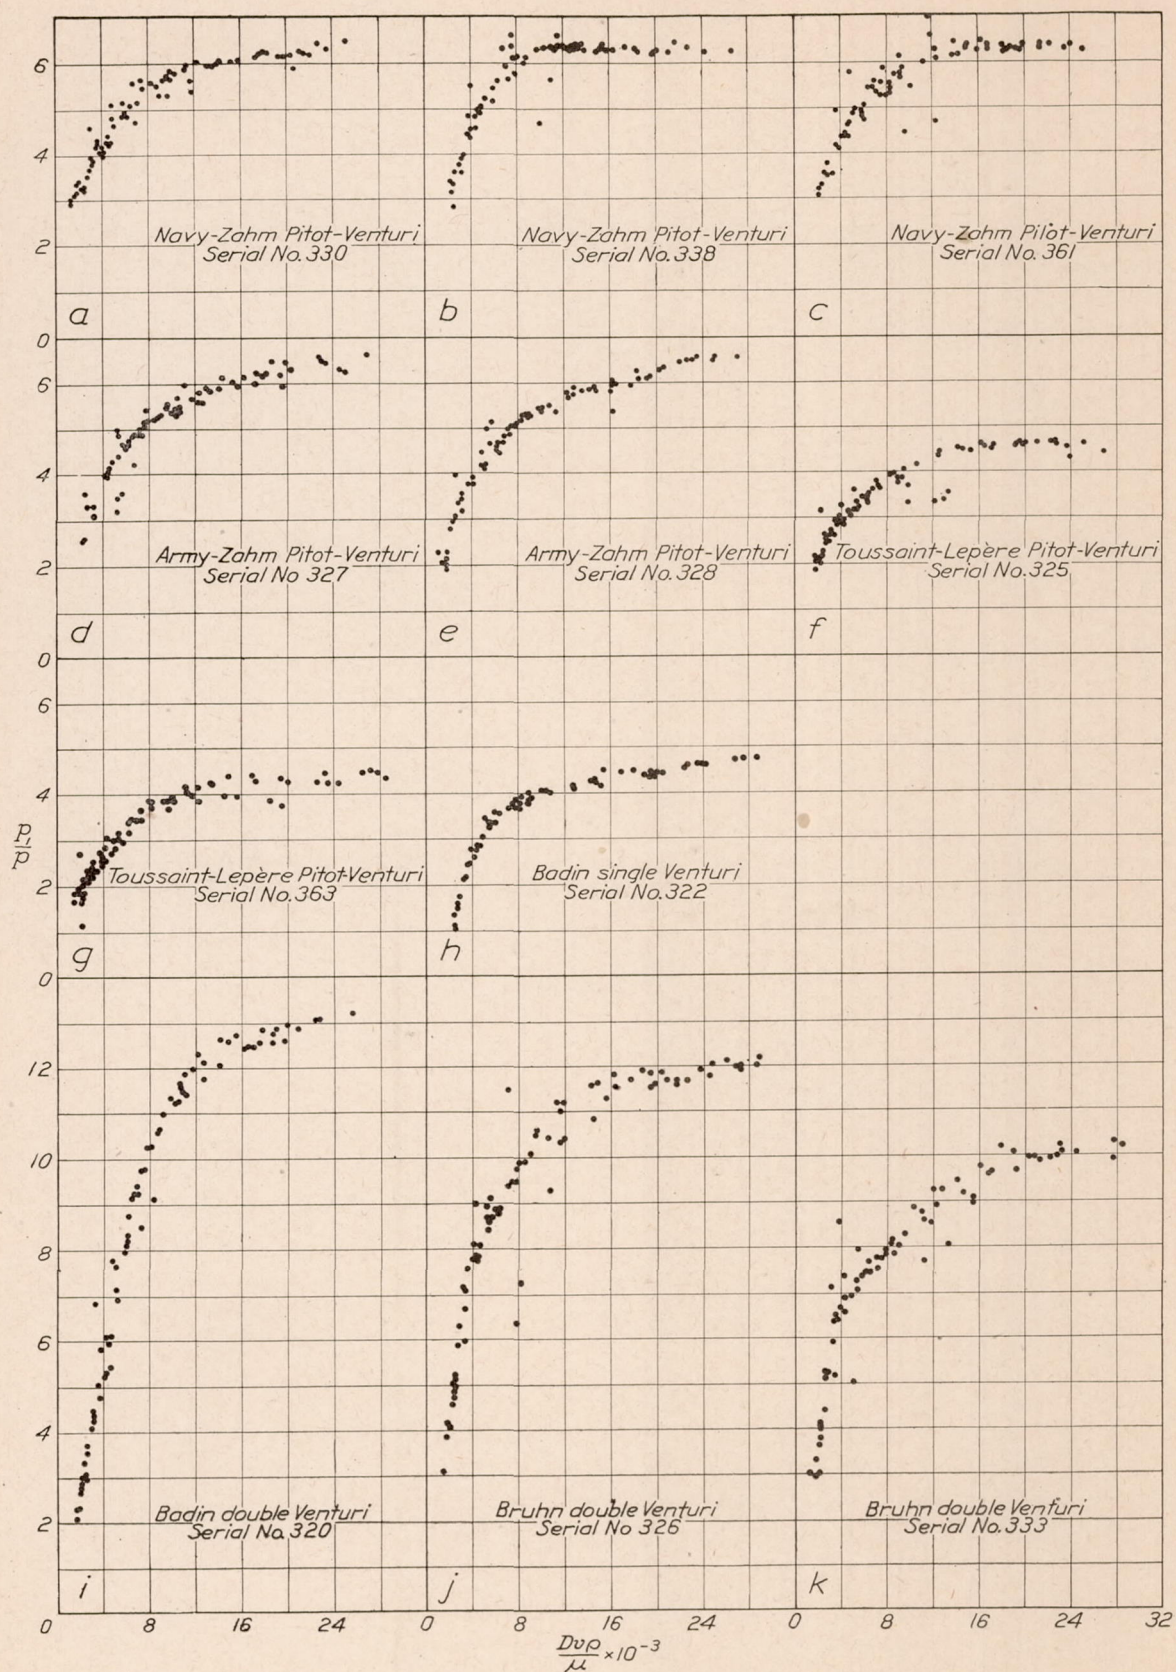 6
4
2
Navy-Zahm Pitot-Venturi
Serial No. 330
Navy-Zahm Pitot-Venturi
Serial No. 338
Navy-Zahm Pitot-Venturi
Serial No. 361
a
b
c
0
6
4
2
Army-Zahm Pitot-Venturi
Serial No 327
Army-Zahm Pitot-Venturi
Serial No. 328
Toussaint-Lepère Pitot-Venturi
Serial No. 325
d
e
f
0
6
4
2
p₁/p
Toussaint-Lepère Pitot-Venturi
Serial No. 363
Badin single Venturi
Serial No. 322
g
h
0
12
10
8
6
4
2
Badin double Venturi
Serial No. 320
Bruhn double Venturi
Serial No 326
Bruhn double Venturi
Serial No. 333
i
j
k
0 8 16 24 0 8 16 24 0 8 16 24 32
Dvρ/μ ×10⁻³